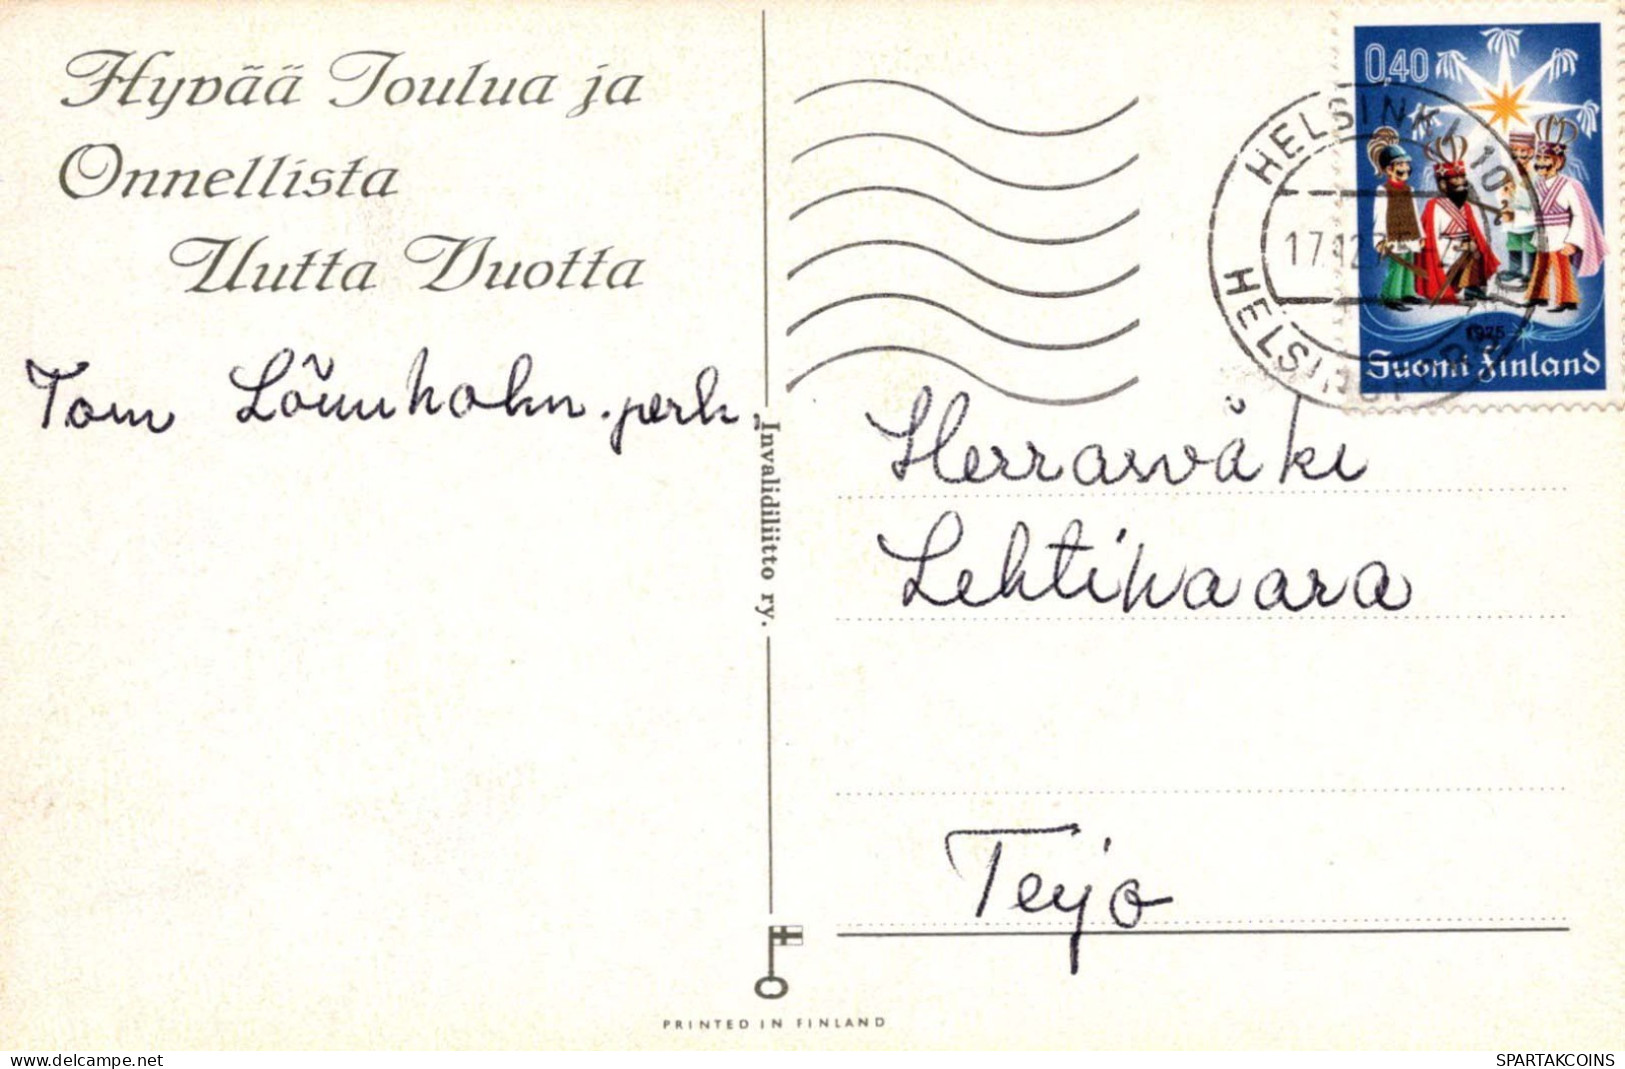 Hyvää Joulua ja
Onnellista
Uutta Vuotta
Tom Lönnholm. perh.
Invalidiliitto ry.
PRINTED IN FINLAND
0,40
1975
Suomi Finland
HELSINKI 10
17.12.75
HELSINGFORS
Herrasväki
Lehtivaara
Teijo
delcampe.net
SPARTAKCOINS